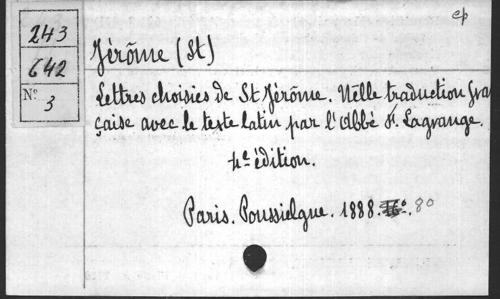 cp
243
642
No
3
Jérôme (St)
Lettres choisies de St Jérôme. Nelle traduction fran
çaise avec le texte latin par l'abbé F. Lagrange.
4e édition.
Paris. Poussielgue. 1888. 80